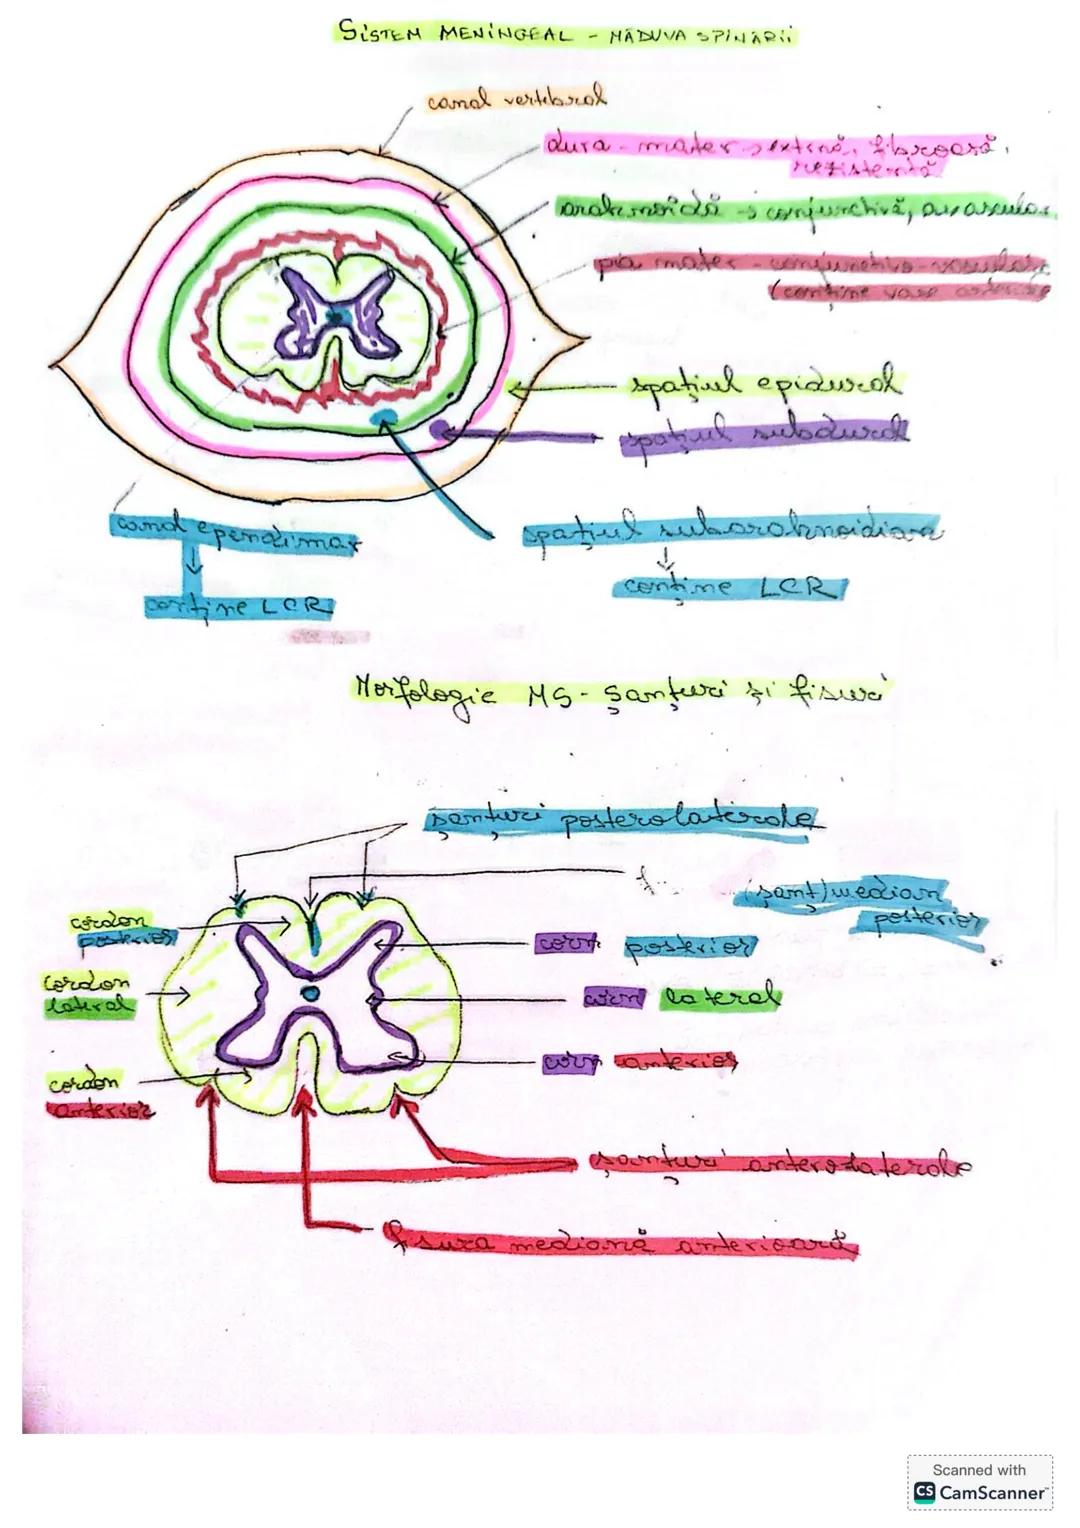 SISTEM MENINGEAL - MĂDUVA SPINĂRII
canal vertebral
dura-mater → externă, fibroasă,
rezistentă
arahnoidă → conjunctivă, avascular
pia mater - conjunctivo-vasculară
(conține vase
spațiul epidural
spațiul subdural
canal ependimar
spațiul subarahnoidian
↓
conține LCR
↓
conține LCR
Morfologie MS - Șanțuri și fisuri
șanțuri posterolaterale
(șanț) median
posterior
cordon
posterior
corn posterior
cordon
lateral
corn lateral
corn anterior
cordon
anterior
șanțuri anterolaterale
fisura mediană anterioară
Scanned with
CS CamScanner